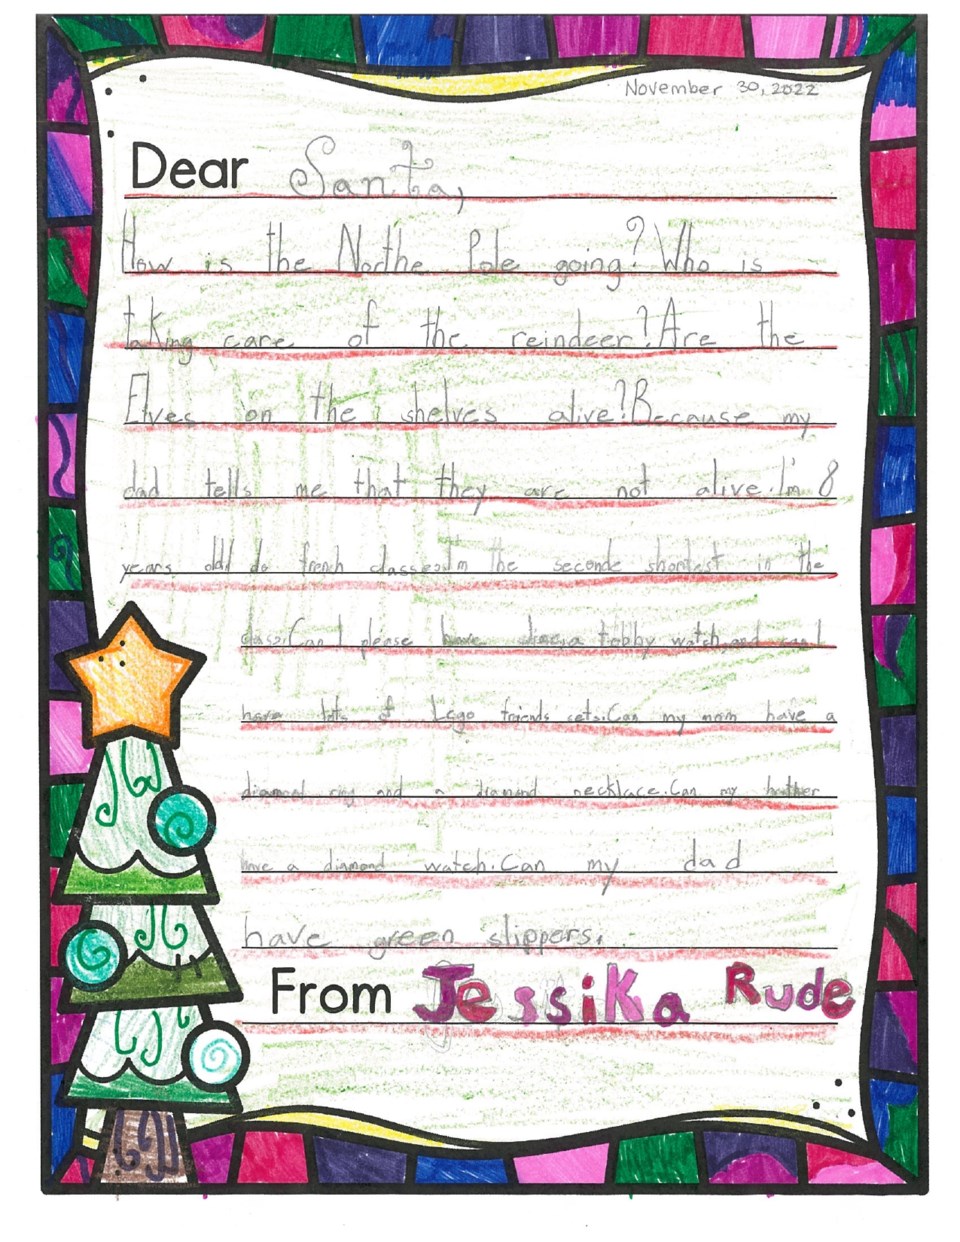 November 30, 2022
Dear Santa,
How is the Northe Pole going? Who is
taking care of the reindeer? Are the
Elves on the shelves alive? Because my
dad tells me that they are not alive. I'm 8
years old I do french classes. I'm the seconde shortest in the
class. Can I please have a tobby watch and can I
have lots of Lego friends sets. Can my mom have a
diamond ring and a diamond necklace. Can my brother
have a diamond watch. Can my dad
have green slippers.
From Jessika Rude